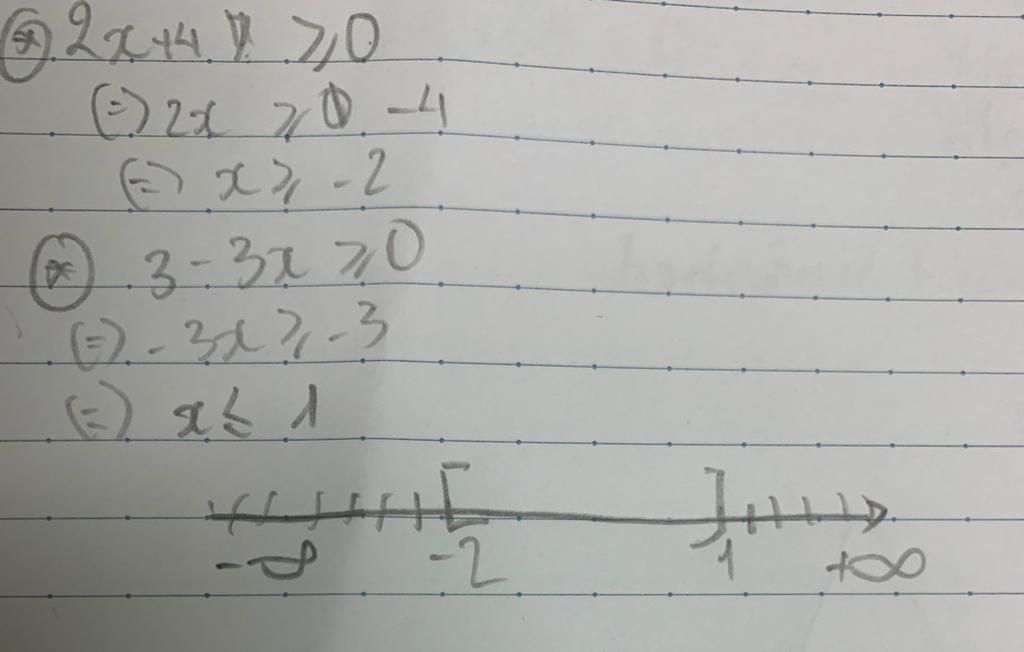 ⊛ 2x+4 ⩾ 0
(=) 2x ⩾ -4
(=) x ⩾ -2
⊛ 3 - 3x ⩾ 0
(=) -3x ⩾ -3
(=) x ≤ 1
[ ]
-∞ -2 1 +∞